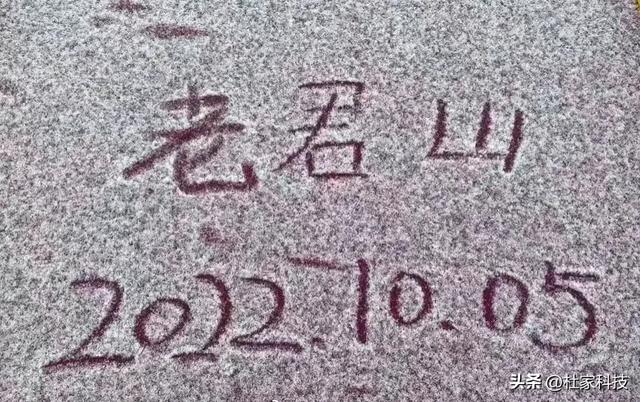 老君山
2022.10.05
头条 @杜家科技